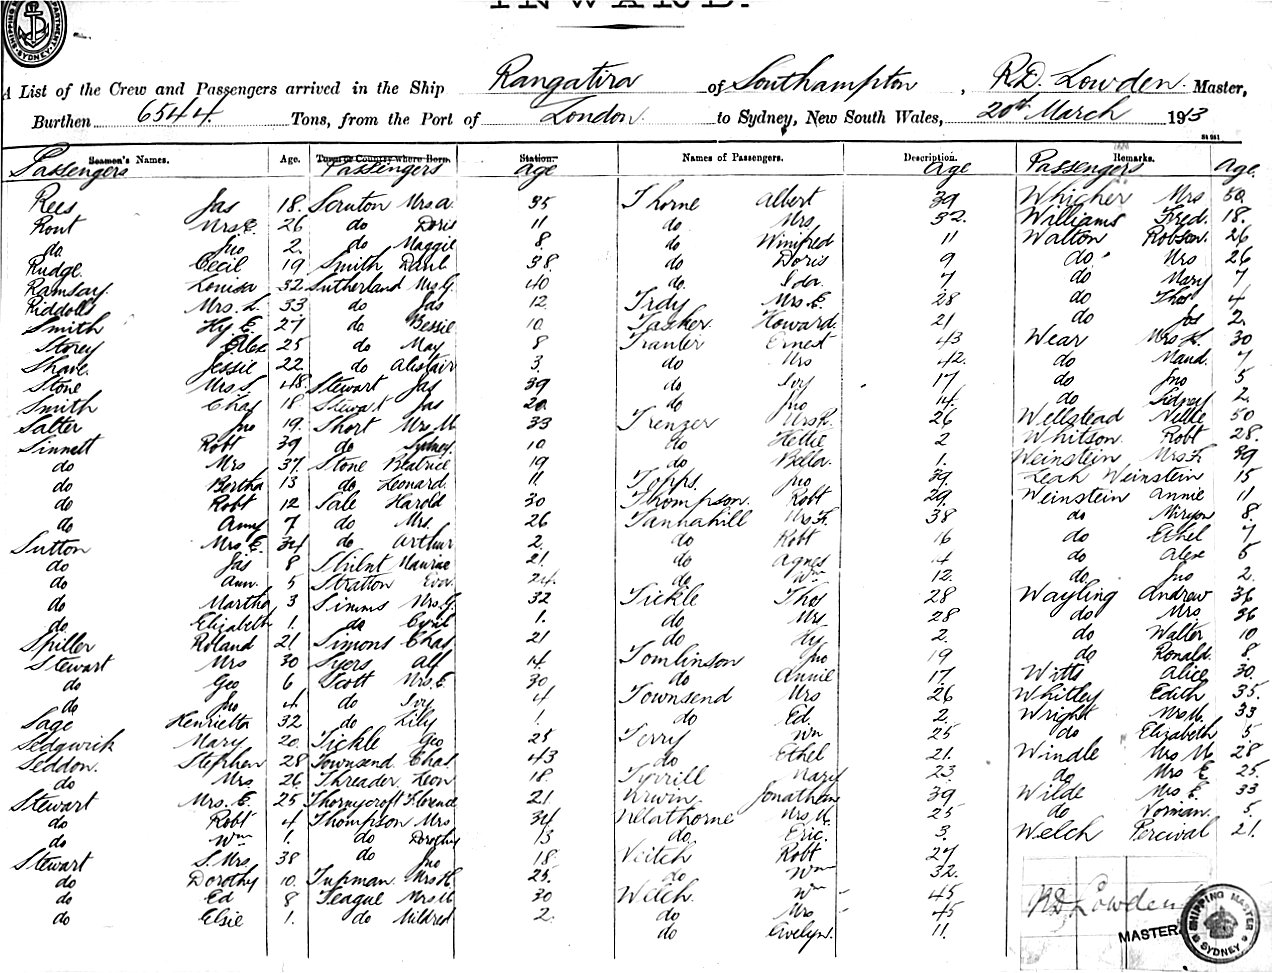 INWARD.
SYDNEY
A List of the Crew and Passengers arrived in the Ship Rangatira of Southampton, R.D. Lowden Master,
Burthen 6544 Tons, from the Port of London to Sydney, New South Wales, 20th March 1913
Seamen's Names. Age. Town or Country where Born. Station. Names of Passengers. Description. Remarks.
Passengers Passengers Age Age Passengers Age
Rees Jas 18
Ront Mrs E. 26
do Jno 2
Rudge Cecil 19
Ramsay Louisa 32
Riddolls Mrs. L. 33
Smith Hy E. 27
Storey Alex 25
Shave Jessie 22
Stone Mrs S. 48
Smith Chas 18
Salter Jno 19
Sinnett Robt 39
do Mrs 37
do Bertha 13
do Robt 12
do Amy 7
Sutton Mrs. E. 34
do Jas 8
do Ann. 5
do Martha 3
do Elizabeth 1.
Spiller Roland 21
Stewart Mrs 30
do Geo 6
do Jno 4
Sage Henrietta 32
Sedgwick Mary 20
Seddon. Stephen 28
do Mrs 26
Stewart Mrs. E. 25
do Robt 4
do Wm 1.
Stewart S. Mrs 38
do Dorothy 10
do Ed 8
do Elsie 1.
Scruton Mrs A. 35
do Doris 11
do Maggie 8
Smith 38
Sutherland Mrs G. 40
do Jas 12
do Bessie 10
do May 8
do Alistair 3
Stewart Jas 39
Stewart Jas 20
Short Mrs M 33
do Sydney 10
Stone Beatrice 19
do Leonard 11
Sale Harold 30
do Mrs. 26
do Arthur 2
Maurice 21
Stratton Eva 24
Simms Mrs. G. 32
do Cyril 1.
Simons Chas 21
Syers Alf 14
Scott Mrs. E. 30
do Ivy 4
do Lily 1.
Tickle Geo 25
Townsend Chas 43
Threader Leon 18
Thornycroft Florence 21
Thompson Mrs 34
do Dorothy 13
do Jno 18
Tupman Mrs H. 25
Teague Mrs M 30
do Mildred 2
Thorne Albert 39
do Mrs 32
do Winifred 11
do Doris 9
do Ida 7
Mrs E. 28
Tasker Howard 21
Tranter Ernest 43
do Mrs 42
do Ivy 17
do Jno 14
Trenger Mrs R. 26
do Hettie 2
do Bella 1.
Topps. Jno 39
Thompson. Robt 29
Tannahill Mrs F. 38
do Robt 16
do Agnes 4
do Wm 12
Tickle Thos 28
do Mrs 28
do Hy 2
Tomlinson Jno 19
do Annie 17
Townsend Mrs 26
do Ed. 2
Terry Wm 25
do Ethel 21
Tyrrill Mary 23
Urwin Jonathan 39
Mrs M. 25
do Eric. 3
Veitch Robt 27
do Wm 32
Welch Wm 45
do Mrs 45
do Evelyn. 11
Whicher Mrs 50
Williams Fred. 18
Walton Robson 26
do Mrs 26
do Mary 7
do Thos 4
do Jos 2
Wear Mrs K. 30
do Maud 7
do Jno 5
do Sidney 2
Wellstead Nellie 50
Whitson Robt 28
Weinstein Mrs F. 39
Leah Weinstein 15
Weinstein Annie 11
do Miryam 8
do Ethel 7
do Alex 5
do Jno 2
Wayling Andrew 36
do Mrs 36
do Walter 10
do Ronald 8
Witts Alice 30
Whitley Edith 35
Wright Mrs M. 33
do Elizabeth 5
Windle Mrs M 28
do Mrs E. 25
Wilde Mrs E. 33
do Norman 5
Welch Percival 21.
RD Lowden
MASTER
SHIPPING MASTER SYDNEY